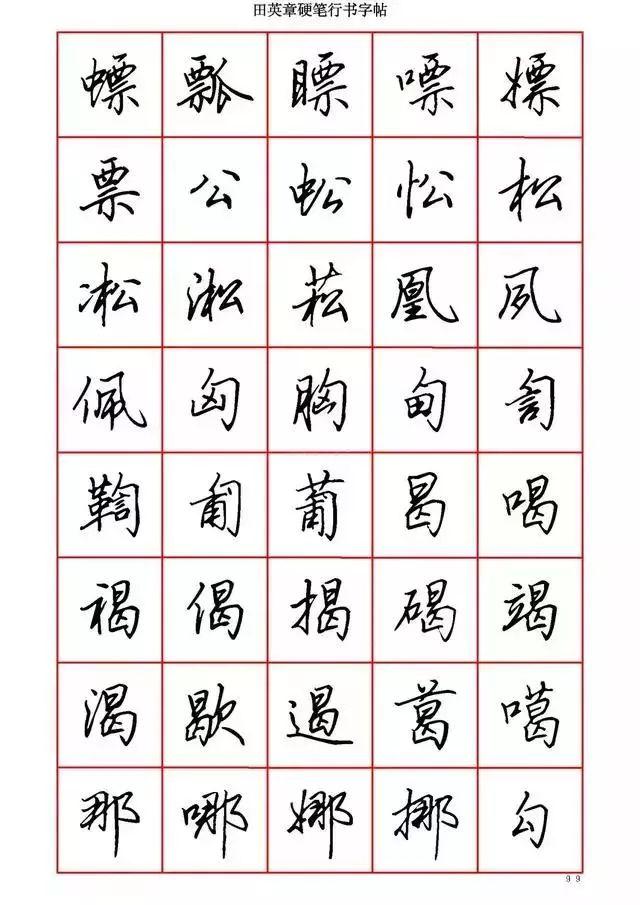 田英章硬笔行书字帖
螵瓢瞟嘌嫖
票公蚣忪松
凇淞菘凰夙
佩匈胸甸訇
鞫匍葡曷喝
褐偈揭碣竭
渴歇遏葛噶
那哪娜挪勾
99